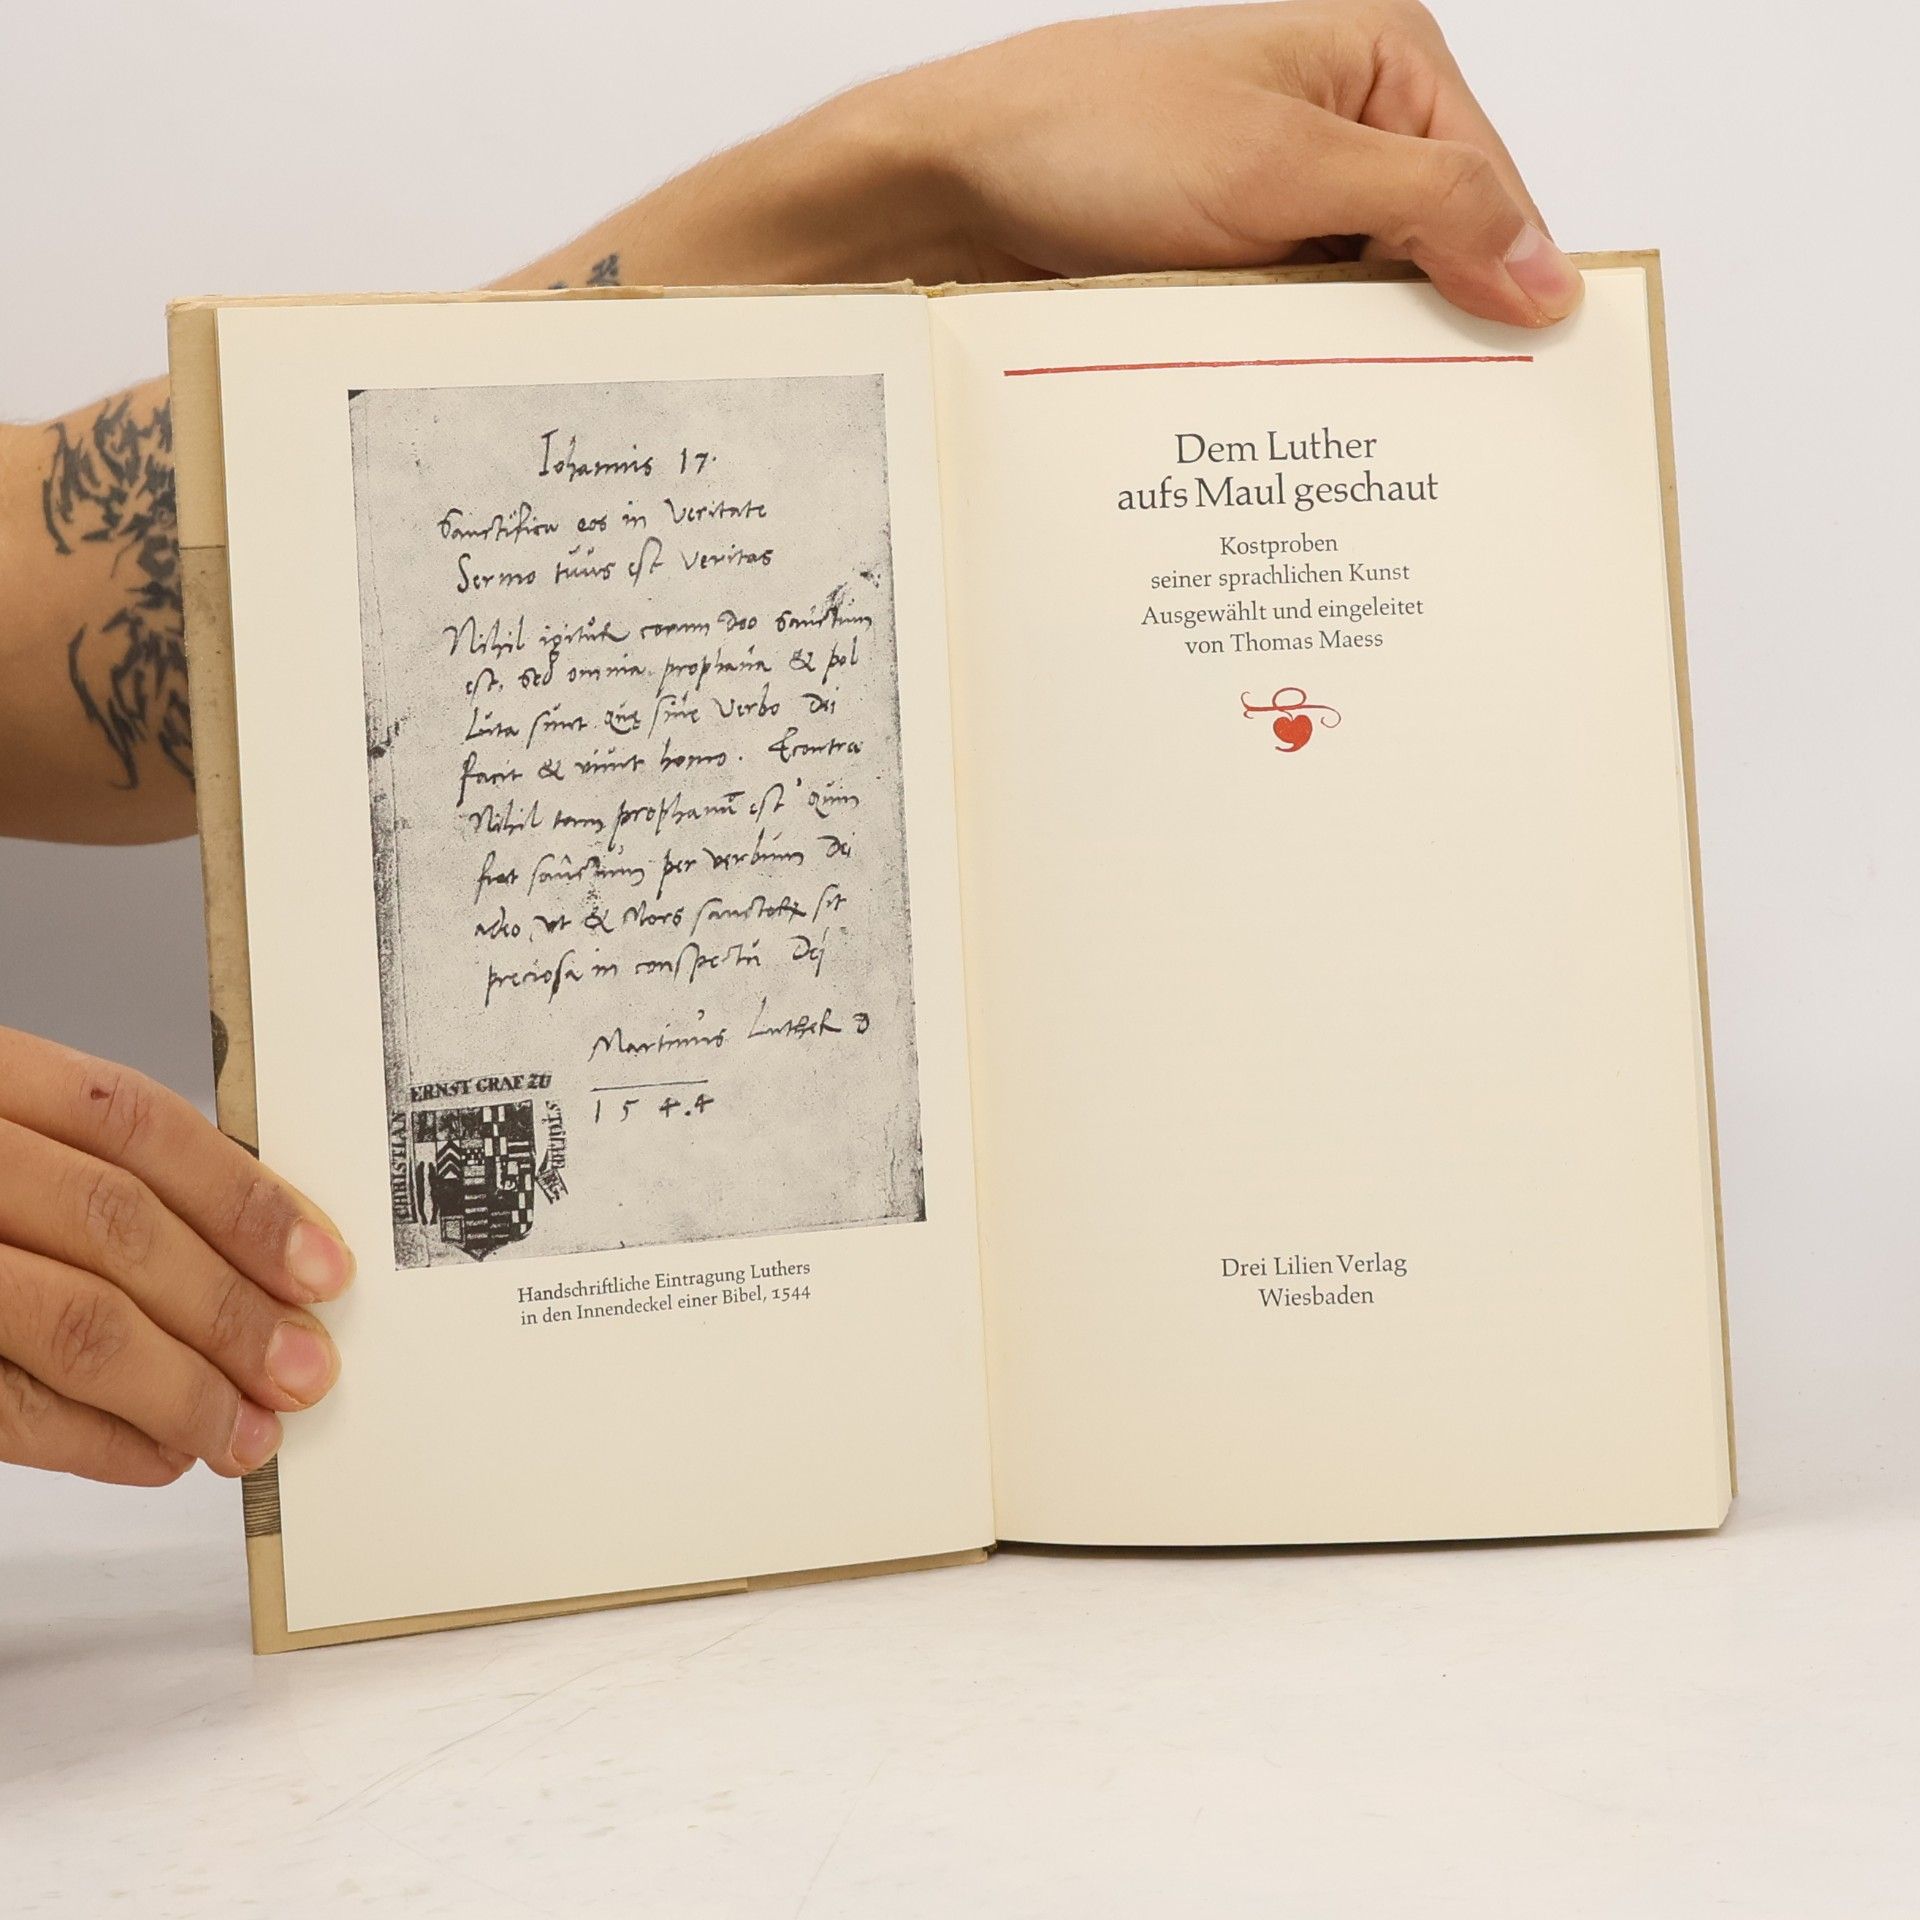 Iohannis 17.
Sanctifica eos in veritate
Sermo tuus est veritas
Nihil igitur coram Deo sanctum
est, sed omnia prophana & pol
luta sunt quę sine verbo Dei
facit & vivit homo. Econtra
Nihil tam prophanū est quin
fiat sanctum per verbum Dei
adeo ut & Mors sanctorum sit
preciosa in conspectu Dei
Martinus Luther D
1 5 4.4
ERNST GRAF ZU
CHRISTIAN
STOLBERG
Handschriftliche Eintragung Luthers
in den Innendeckel einer Bibel, 1544
Dem Luther
aufs Maul geschaut
Kostproben
seiner sprachlichen Kunst
Ausgewählt und eingeleitet
von Thomas Maess
Drei Lilien Verlag
Wiesbaden